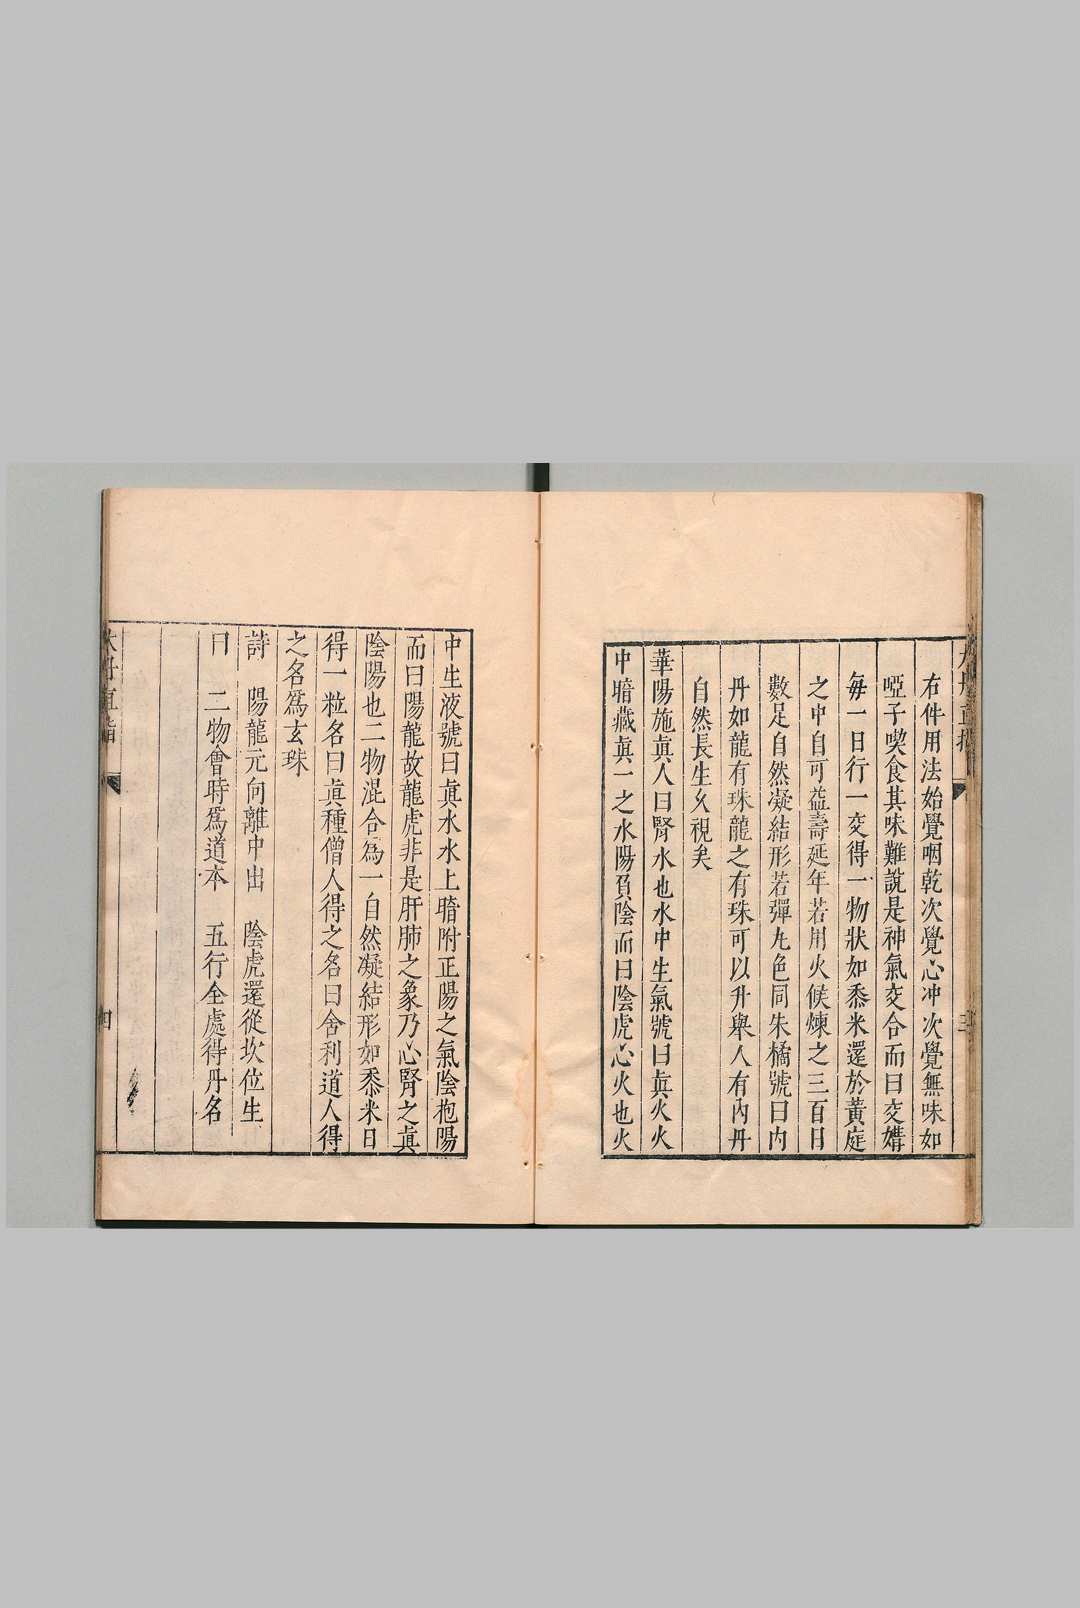 大丹直指
三
右件用法始覺咽乾次覺心冲次覺無味如
啞子喫食其味難說是神氣交合而曰交媾
每一日行一交得一物狀如黍米還於黃庭
之中自可益壽延年若用火候煉之三百日
數足自然凝結形若彈丸色同朱橘號曰内
丹如龍有珠龍之有珠可以升舉人有内丹
自然長生久視矣
華陽施眞人曰腎水也水中生氣號曰眞火火
中暗藏眞一之水陽負陰而曰陰虎心火也火
中生液號曰眞水水上暗附正陽之氣陰抱陽
而曰陽龍故龍虎非是肝肺之象乃心腎之眞
陰陽也二物混合為一自然凝結形如黍米日
得一粒名曰眞種僧人得之名曰舍利道人得
之名爲玄珠
詩　陽龍元向離中出　陰虎還從坎位生
曰　二物會時爲道本　五行全處得丹名
大丹直指
四